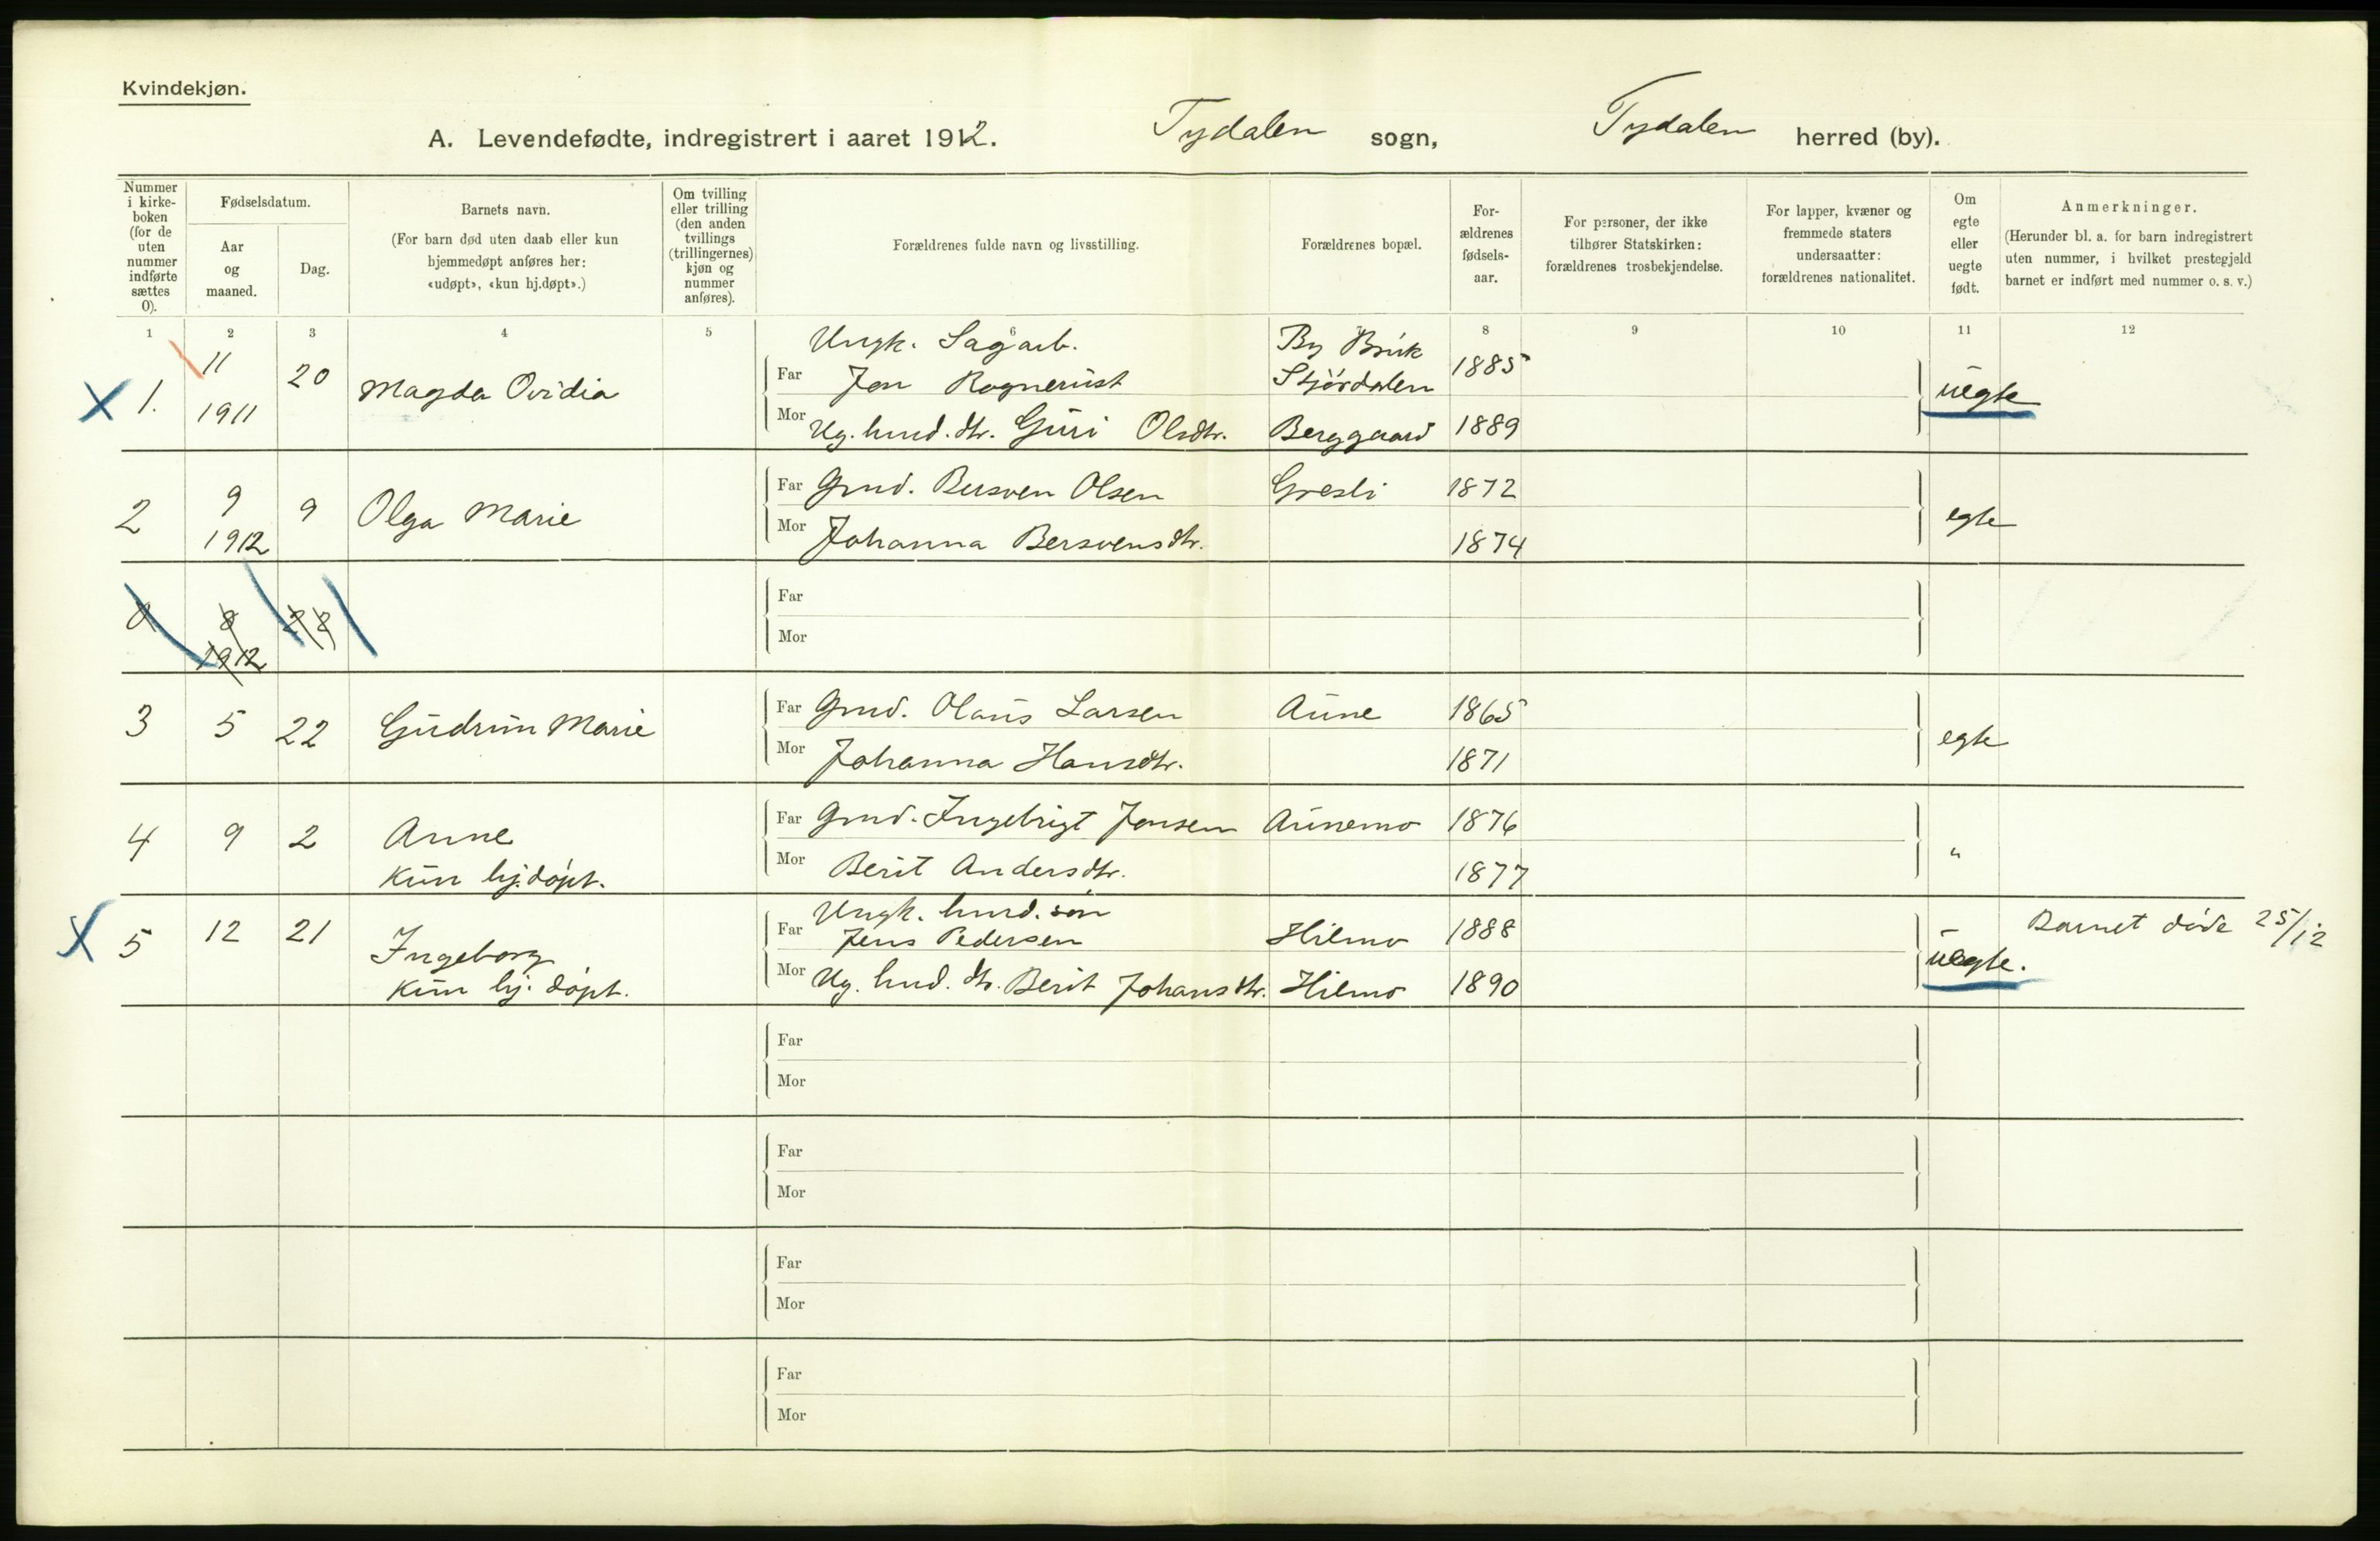 Kvindekjøn.
A. Levendefødte, indregistrert i aaret 1912. Tydalen sogn, Tydalen herred (by).
Nummer i kirke-boken (for de uten nummer indførte sættes 0).
Fødselsdatum.
Aar og maaned.
Dag.
Barnets navn.
(For barn død uten daab eller kun hjemmedøpt anføres her: «udøpt», «kun hj.døpt».)
Om tvilling eller trilling (den anden tvillings (trillingernes) kjøn og nummer anføres).
Forældrenes fulde navn og livsstilling.
Forældrenes bopæl.
For-ældrenes fødsels-aar.
For personer, der ikke tilhører Statskirken: forældrenes trosbekjendelse.
For lapper, kvæner og fremmede staters undersaatter: forældrenes nationalitet.
Om egte eller uegte født.
Anmerkninger.
(Herunder bl. a. for barn indregistrert uten nummer, i hvilket prestegjeld barnet er indført med nummer o. s. v.)
1 2 3 4 5 6 7 8 9 10 11 12
X 1. 11 1911 20 Magda Ovidia
Ungk. Sagarb. By Bruk
Far Jon Rognerust Stjørdalen 1885
Mor Ug. hmd. dtr. Guri Olsdtr. Berggaard 1889
uegte
2 9 1912 9 Olga Marie
Far Grmd. Bersven Olsen Gresli 1872
Mor Johanna Bersvensdtr. 1874
egte
8 1912
Far
Mor
3 5 22 Gudrun Marie
Far Grmd. Olaus Larsen Aune 1865
Mor Johanna Hansdtr. 1871
egte
4 9 2 Anne
Kun hj.døpt.
Far Grmd. Ingebrigt Jensen Aunemo 1876
Mor Berit Andersdtr. 1877
"
X 5 12 21 Ingeborg
Kun hj. døpt.
Ungk. hmd. søn
Far Jens Pedersen Hilmo 1888
Mor Ug. hmd. dtr. Berit Johansdtr. Hilmo 1890
uegte.
Barnet døde 25/12
Far
Mor
Far
Mor
Far
Mor
Far
Mor